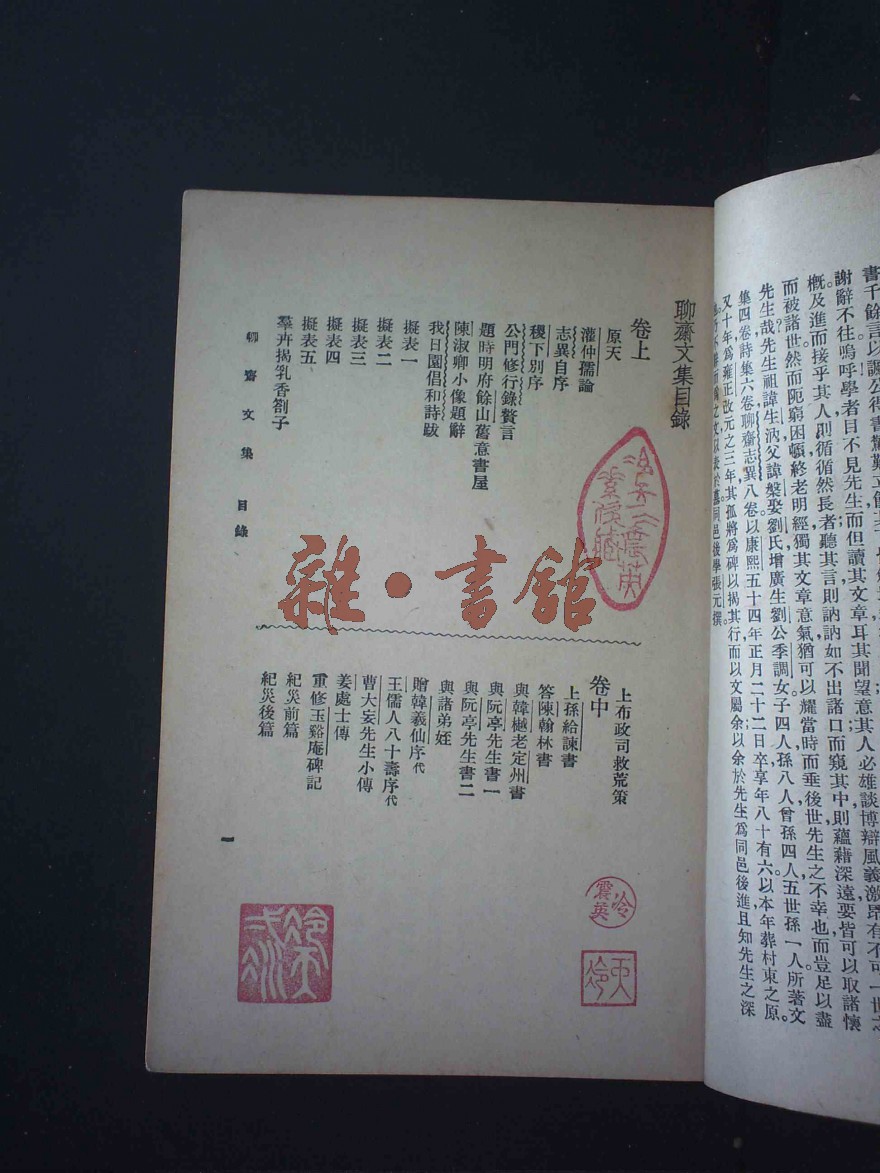 書千餘言以
謝辭不往嗚呼學者目不見先生而但讀其文章耳其聞望意其人必雄談博辯風義激昂有不可一世之
概及進而接乎其人則循循然長者聽其言則訥訥如不出諸口而窺其中則蘊藉深遠要皆可以取諸懷
而被諸世然而阨窮困頓終老明經獨其文章意氣猶可以耀當時而垂後世先生之不幸也而豈足以盡
先生哉先生祖諱生汭父諱槃娶劉氏增廣生劉公季調女子四人孫八人曾孫四人五世孫一人所著文
集四卷詩集六卷聊齋志異八卷以康熙五十四年正月二十二日卒享年八十有六以本年葬村東之原。
又十年爲雍正改元之三年其孤將爲碑以揭其行而以文屬余以余於先生爲同邑後進且知先生之深
同邑後學張元撰。
聊齋文集目錄
卷上
原天
灌仲孺論
志異自序
稷下別序
公門修行錄贅言
題時明府餘山舊意書屋
陳淑卿小像題辭
我日園倡和詩跋
擬表一
擬表二
擬表三
擬表四
擬表五
羣卉揭乳香劄子
上布政司救荒策
卷中
上孫給諫書
答陳翰林書
與韓樾老定州書
與阮亭先生書一
與阮亭先生書二
與諸弟姪
贈韓義仙序代
王儒人八十壽序代
曹大妄先生小傳
姜處士傳
重修玉谿庵碑記
紀災前篇
紀災後篇
聊齋文集 目錄
一
雜·書館
冷震英